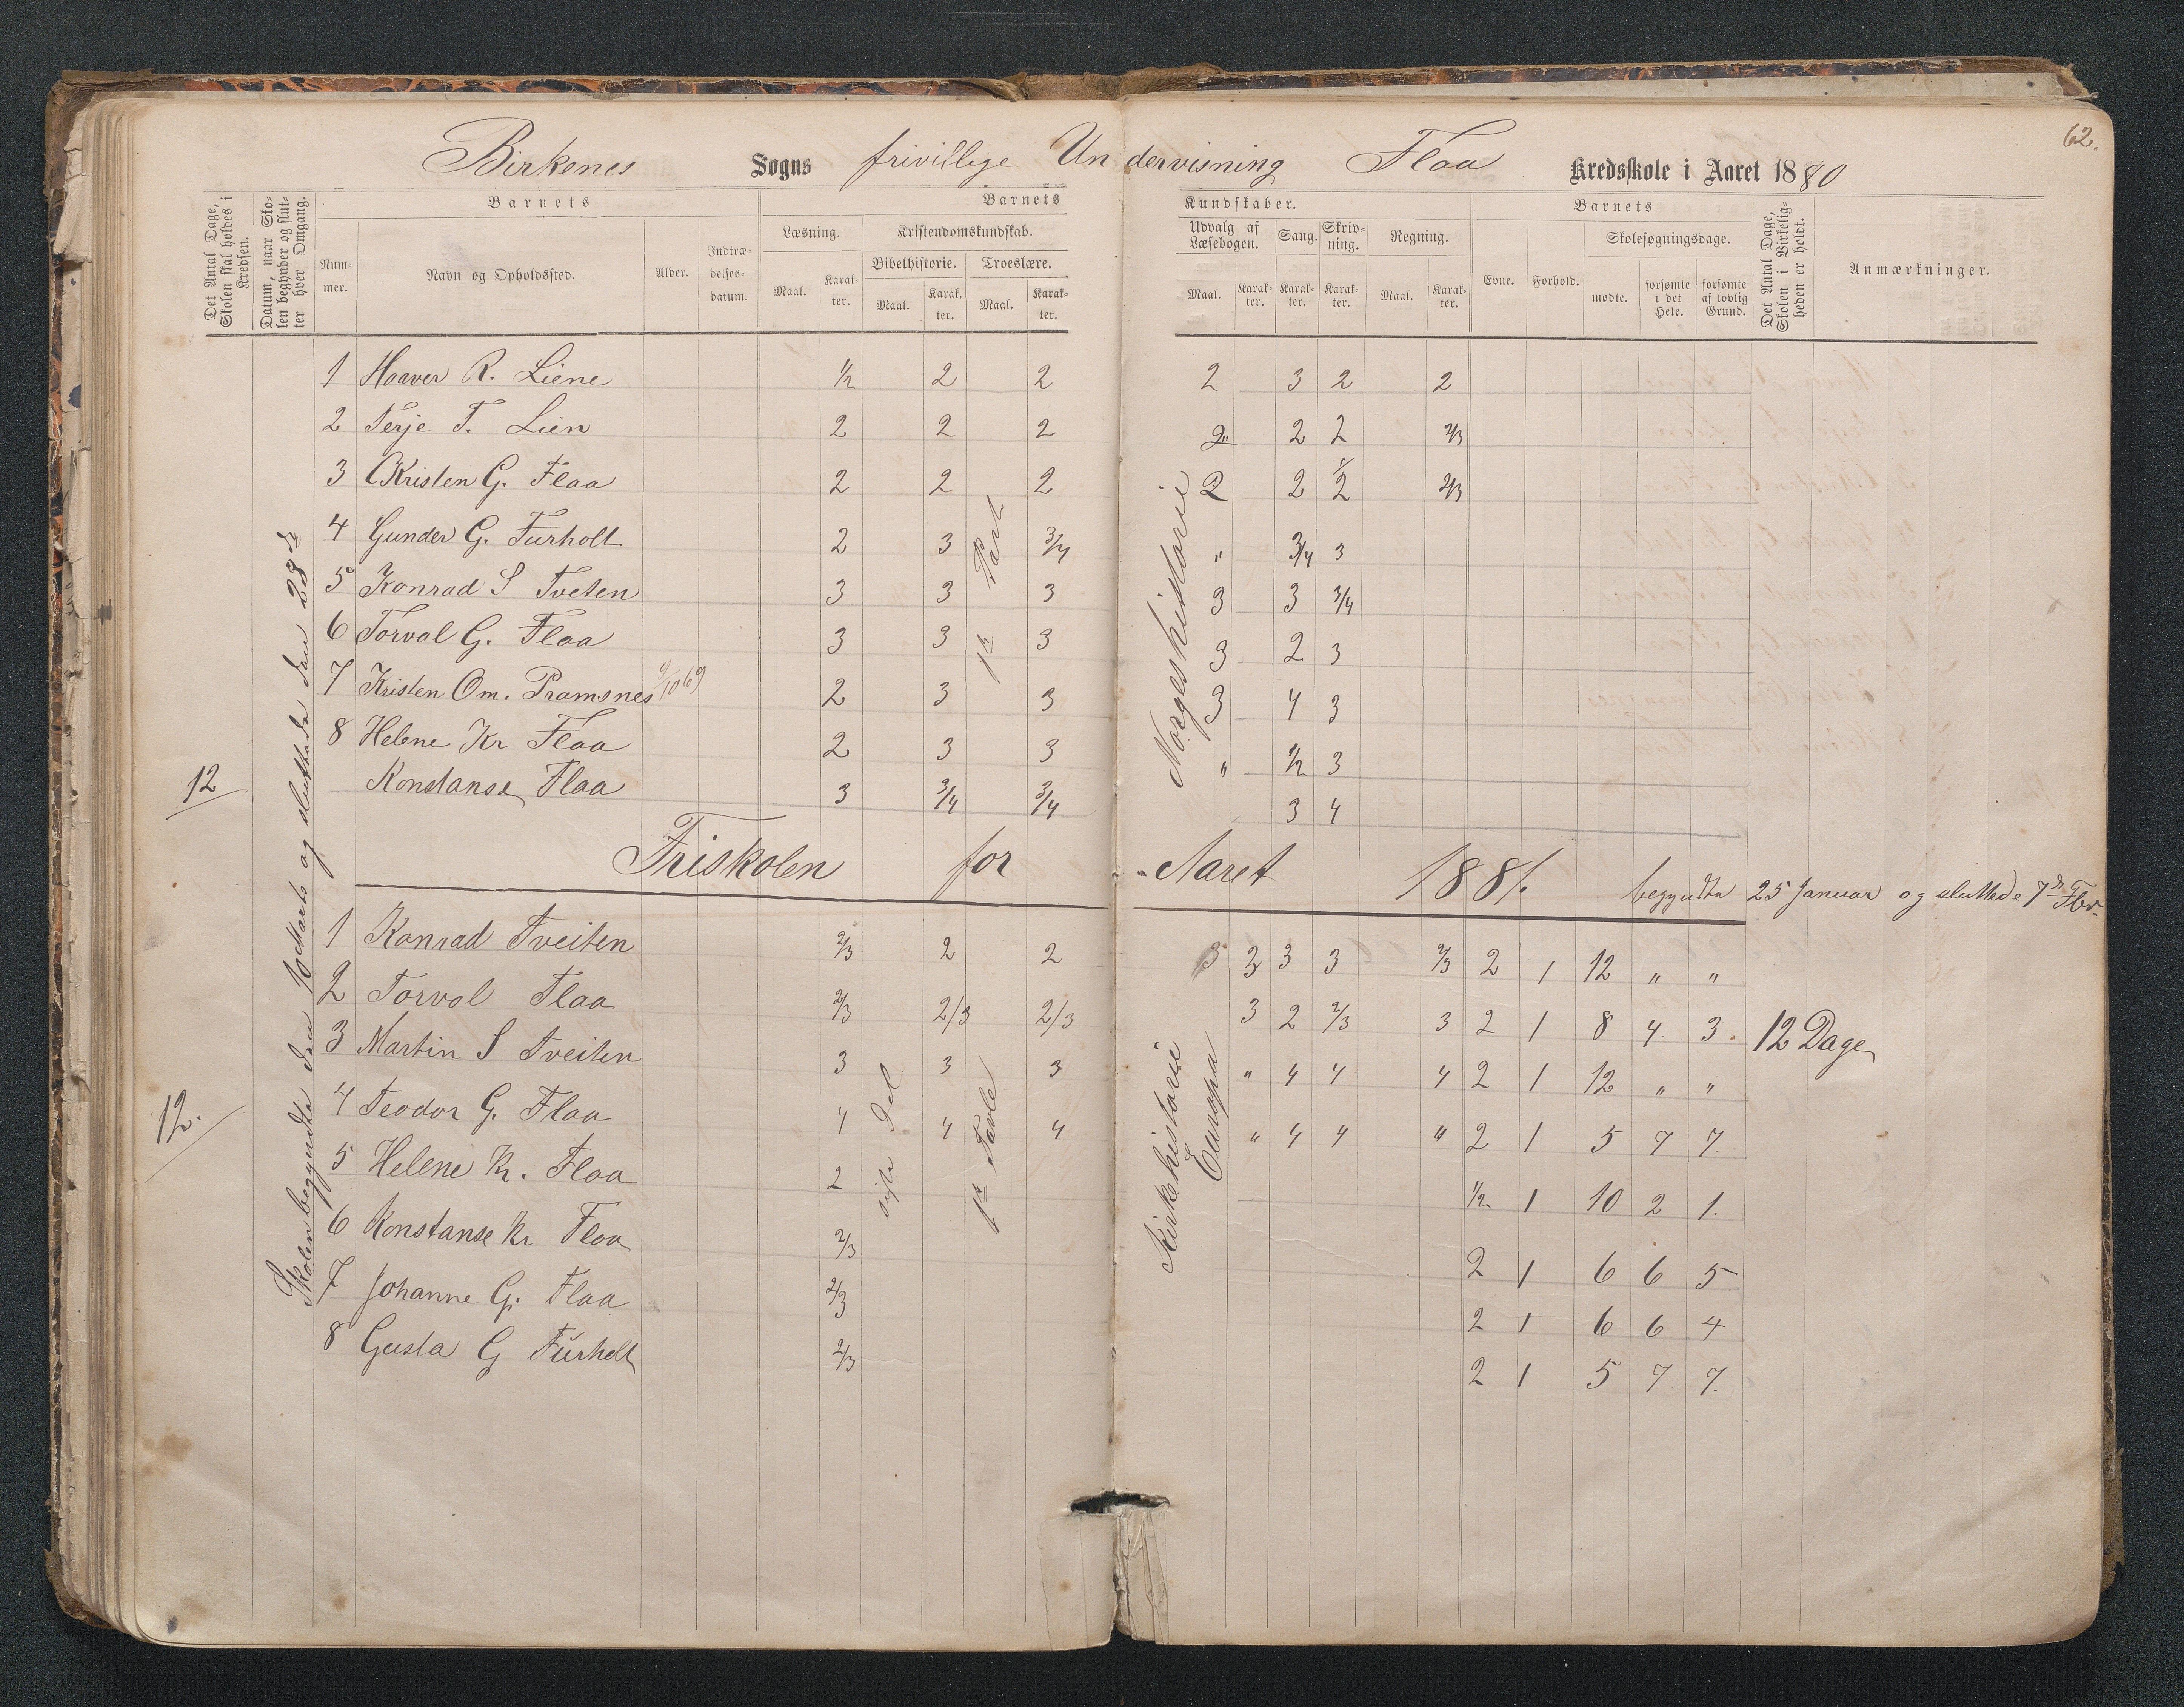 62.
Birkenes Sogns frivillige Undervisning Flaa Kredsskole i Aaret 1880
Det Antal Dage, Skolen skal holdes i Kredsen.
Datum, naar Skolen begynder og slutter hver Omgang.
Barnets
Barnets Kundskaber.
Barnets
Nummer.
Navn og Opholdssted.
Alder.
Indtrædelses-datum.
Læsning.
Maal. Karakter.
Kristendomskundskab.
Bibelhistorie. Troeslære.
Maal. Karakter. Maal. Karakter.
Udvalg af Læsebogen.
Maal. Karakter.
Sang. Karakter.
Skrivning. Karakter.
Regning.
Maal. Karakter.
Evne. Forhold.
Skolesøgningsdage.
mødte. forsømte i det Hele. forsømte af lovlig Grund.
Det Antal Dage, Skolen i Virkeligheden er holdt.
Anmærkninger.
12
Skolen begyndte den 10 Marts og sluttede den 23de
1 Haaver R. Liene 1/2 2 2 2 3 2 2
2 Terje T. Lien 2 2 2 2" 2 2 2/3
3 Kristen G. Flaa 2 2 2 2 2 1/2 2/3
4 Gunder G. Furholt 2 3 3/4 " 3/4 3
5 Konrad S Tveten 3 3 3 3 3 3/4
6 Torval G. Flaa 3 3 3 3 2 3
7 Kristen Om. Pramsnes 9/10 69 2 3 3 3 4 3
8 Helene Kr Flaa 2 3 3 " 1/2 3
Konstanse Flaa 3 3/4 3/4 3 4
1ste Part
Norgeshistorie
Friskolen for Aaret 1881. begyndte 25 Januar og sluttede 7de Fbr.
12.
1 Konrad Tveiten 2/3 2 2 3 3 3 3 2/3 2 1 12 " "
2 Torval Flaa 2/3 2/3 2/3 3 2 2/3 3 2 1 8 4. 3. 12 Dage
3 Martin S Tveiten 3 3 3 " 4 4 4 2 1 12 " "
4 Teodor G. Flaa 4 4 4 " 4 4 " 2 1 5 7 7.
5 Helene K. Flaa 2 1/2 1 10 2 1.
6 Konstanse Kr Flaa 2/3 2 1 6 6 5
7 Johanne G. Flaa 2/3 2 1 6 6 4
8 Gusta G Furholt 2/3 2 1 5 7 7.
sidste Del
1ste Tavle
Kirkehistorie
Europa